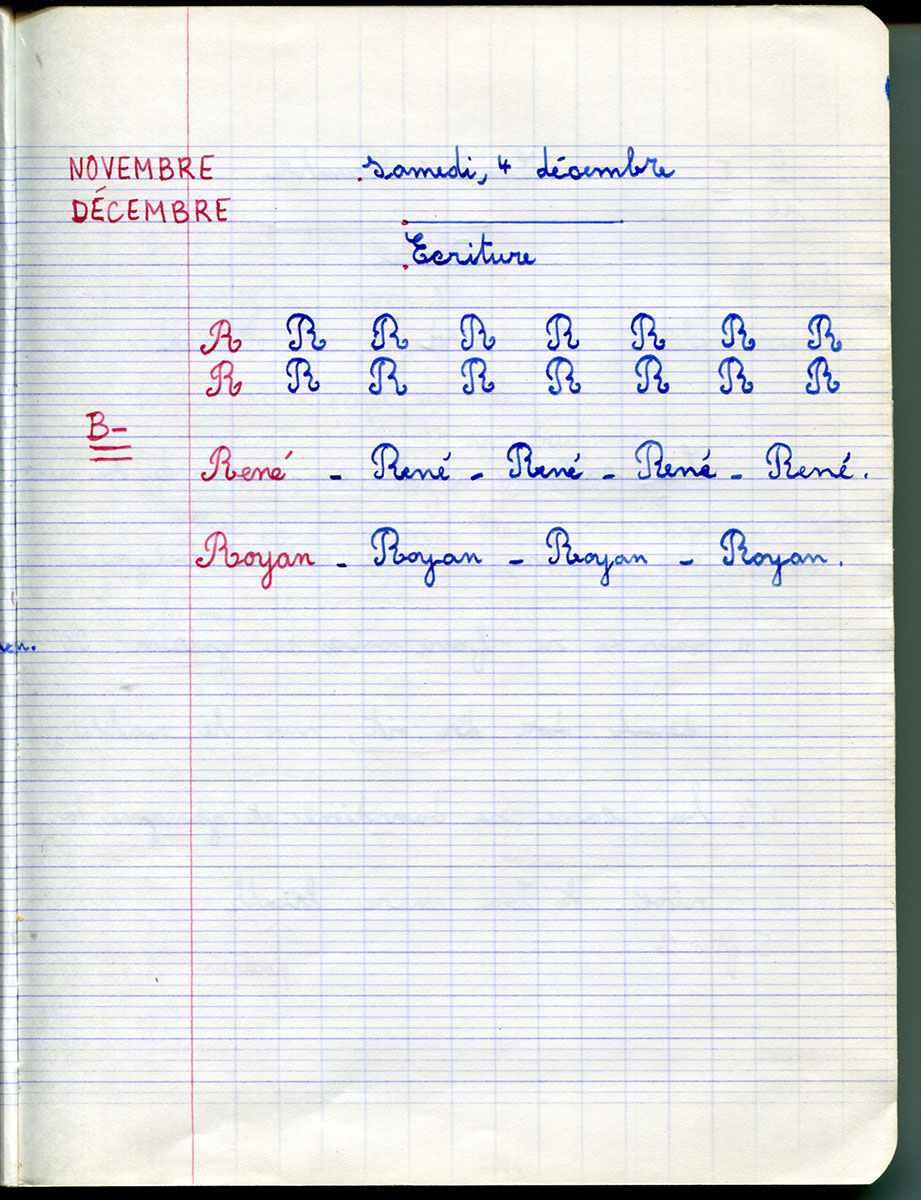 NOVEMBRE
DÉCEMBRE
Samedi, 4 décembre
Ecriture
R R R R R R R R
R R R R R R R R
B-
René - René - René - René - René.
Royan - Royan - Royan - Royan.